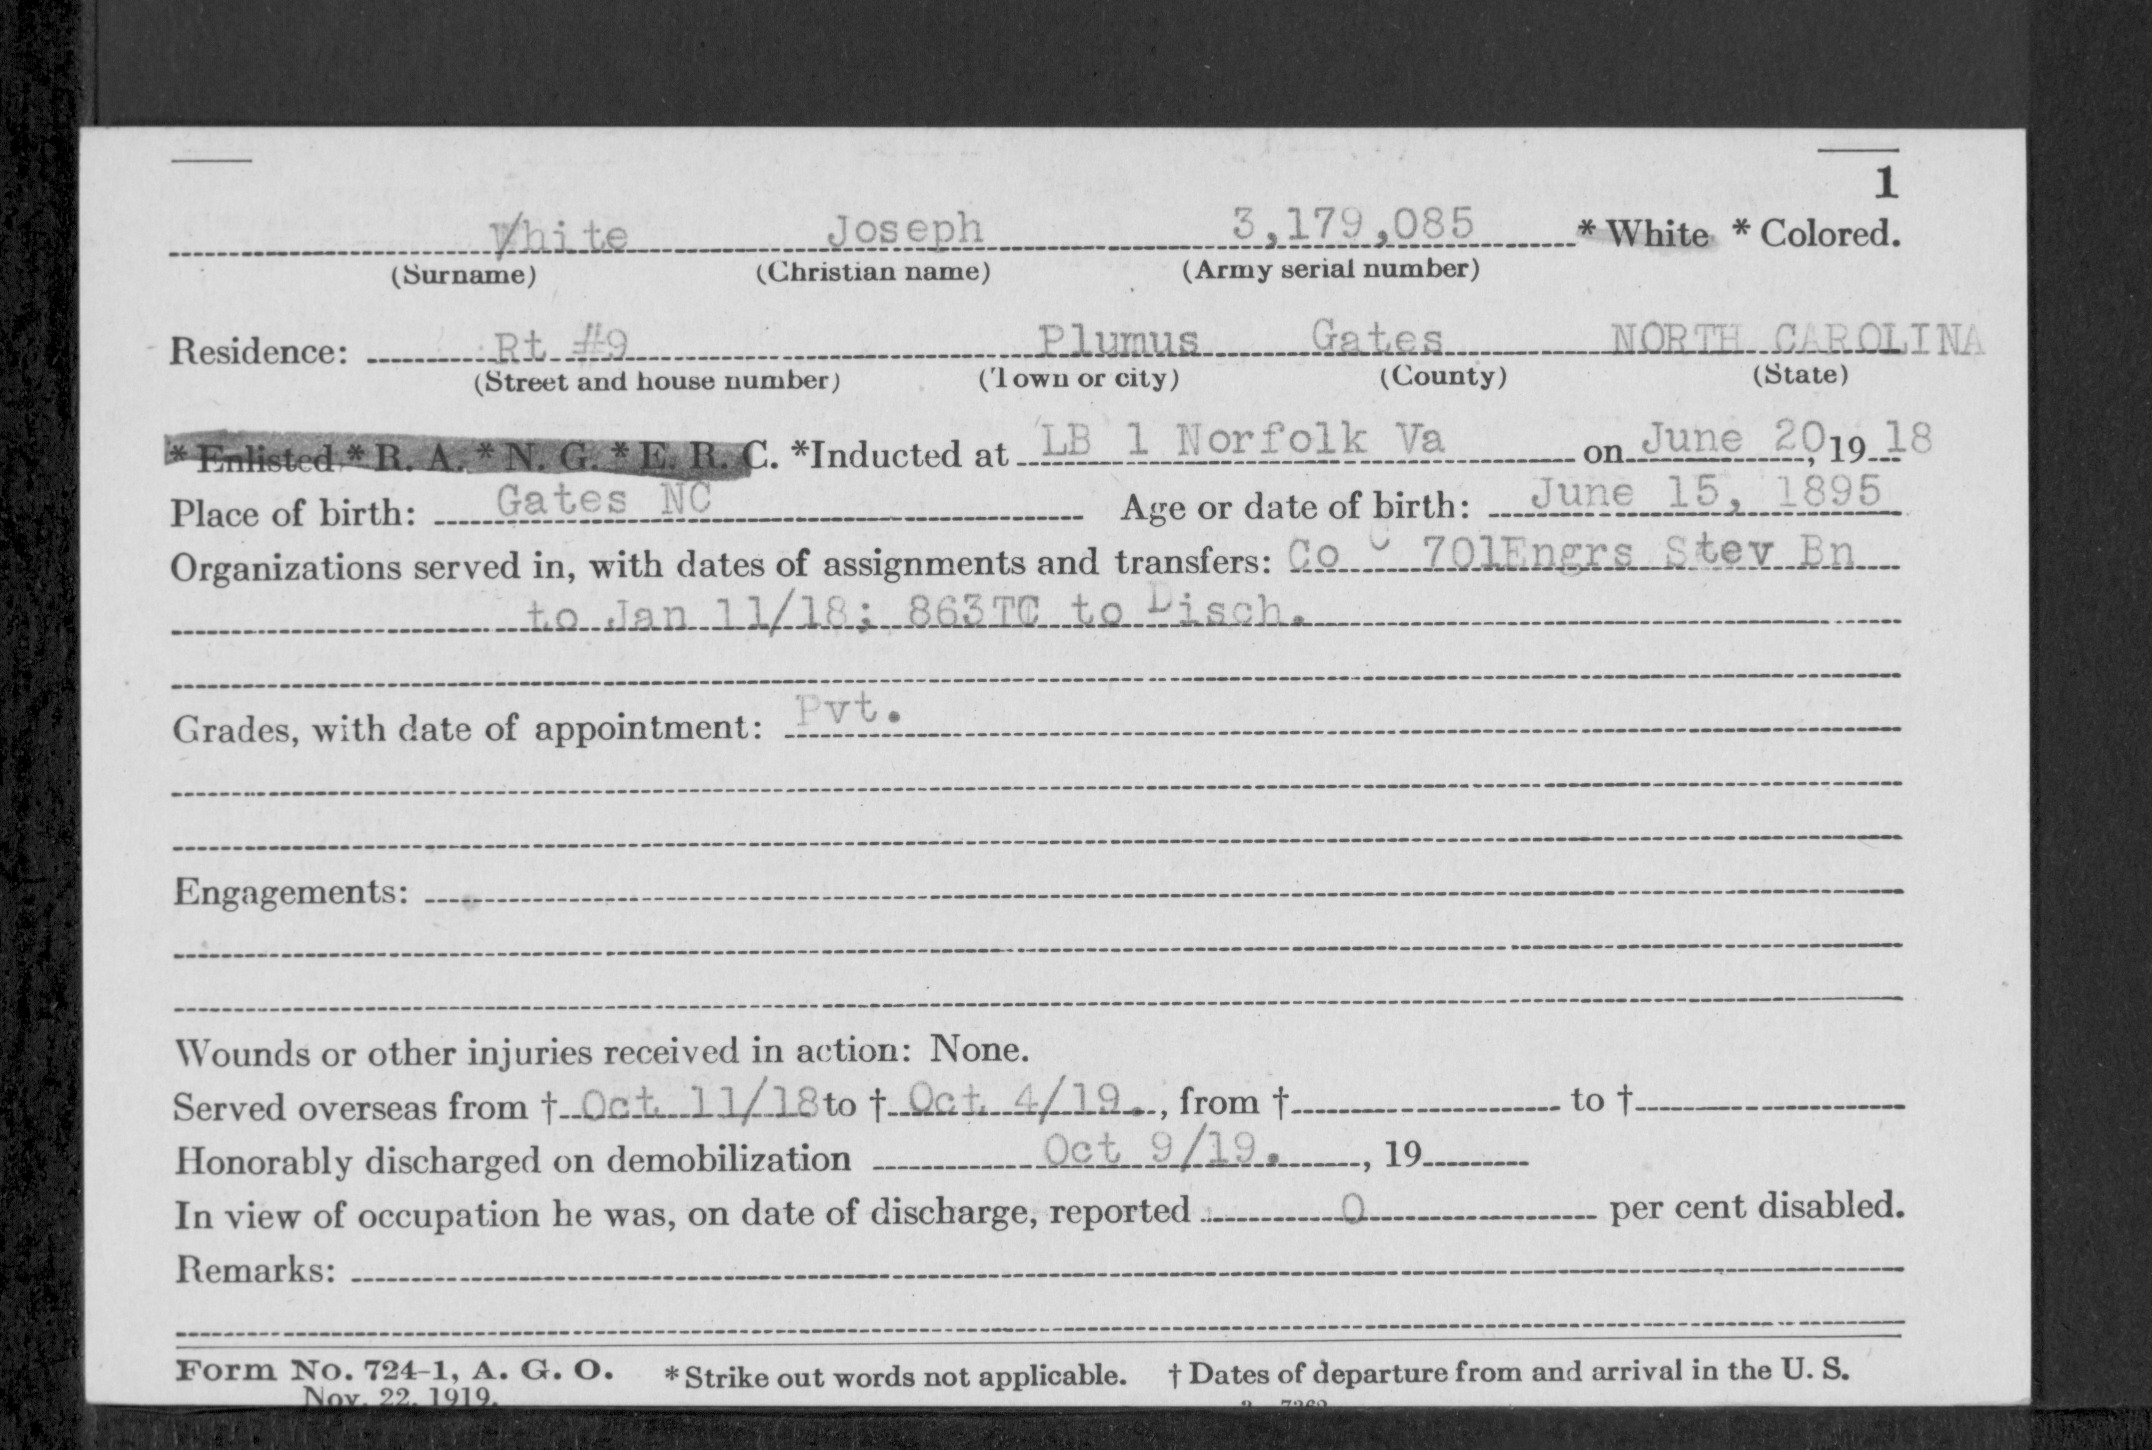 1
White Joseph 3,179,085 * White * Colored.
(Surname) (Christian name) (Army serial number)
Residence: Rt #9 Plumus Gates NORTH CAROLINA
(Street and house number) (Town or city) (County) (State)
* Enlisted * R. A. * N. G. * E. R. C. *Inducted at LB 1 Norfolk Va on June 20, 19 18
Place of birth: Gates NC Age or date of birth: June 15, 1895
Organizations served in, with dates of assignments and transfers: Co 701Engrs Stev Bn
to Jan 11/18; 863TC to Disch.
Grades, with date of appointment: Pvt.
Engagements:
Wounds or other injuries received in action: None.
Served overseas from † Oct 11/18 to † Oct 4/19., from † to †
Honorably discharged on demobilization Oct 9/19. , 19
In view of occupation he was, on date of discharge, reported 0 per cent disabled.
Remarks:
Form No. 724-1, A. G. O. * Strike out words not applicable. † Dates of departure from and arrival in the U. S.
Nov. 22, 1919.